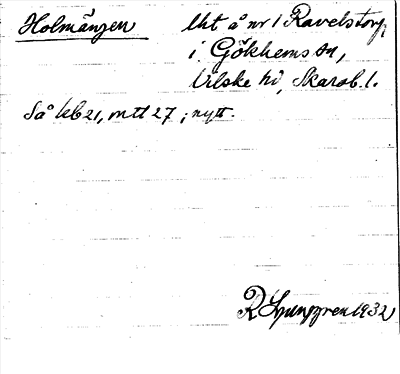 Holmängen lht å nr 1 Ravelstorp,
i Gökhems sn,
Vilske hd, Skarab. l.
Så kb 21, mtl 27; nytt.
R Ljunggren 1932